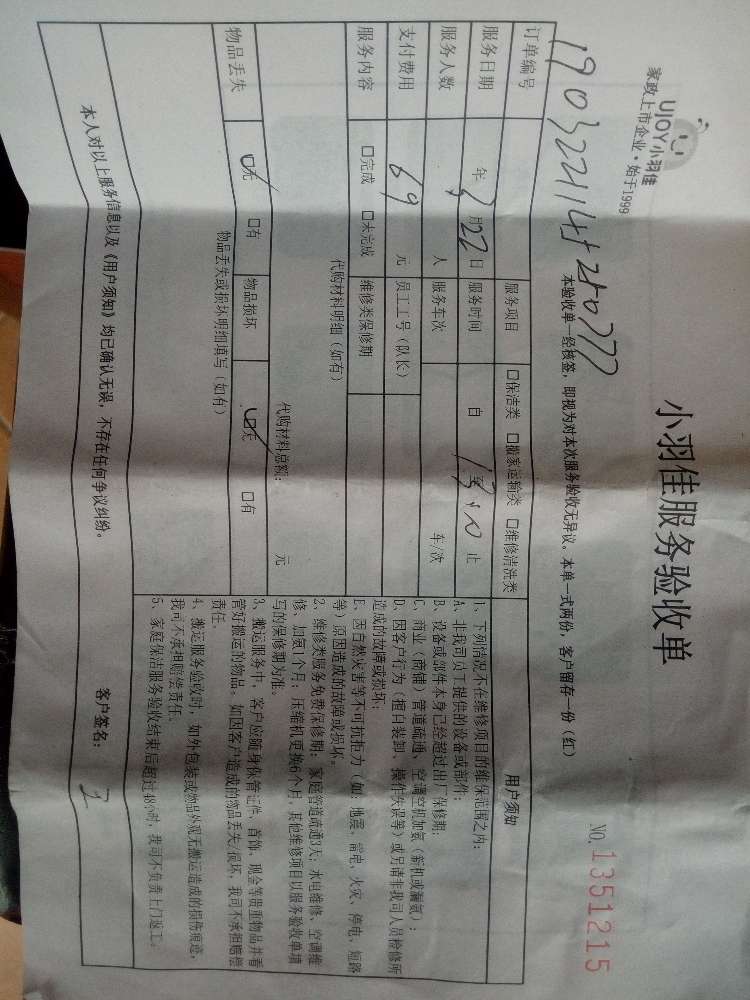 UJOY小羽佳
家政上市企业·始于1999
小羽佳服务验收单
NO. 1351215
本验收单一经核签，即视为对本次服务验收无异议。本单一式两份，客户留存一份（红）
订单编号
服务项目 □保洁类 □搬家运输类 □维修清洗类
服务日期 年3月22日 服务时间 自 至 止
服务人数 人 服务车次 车/次
支付费用 69 元 员工工号（队长）
服务内容 □完成 □未完成 维修类保修期
代购材料明细（如有）
代购材料总额： 元
物品丢失 □无 □有 物品损坏 □无 □有
物品丢失或损坏明细填写（如有）
用户须知
1、下列情况不在维修项目的维保范围之内：
A、非我司员工提供的设备或部件；
B、设备或部件本身已经超过出厂保修期；
C、商业（商铺）管道疏通、空调空机加氨（新机或漏氨）；
D、因客户行为（擅自装卸、操作失误等）或另请非我司人员检修所
造成的故障或损坏；
E、因自然灾害等不可抗拒力（如：地震、雷电、火灾、停电、短路
等）原因造成的故障或损坏。
2、维修类服务免费保修期：家庭管道疏通3天；水电维修、空调维
修、加氨1个月；压缩机更换6个月，其他维修项目以服务验收单填
写的保修期为准。
3、搬运服务中，客户应随身保管证件、首饰、现金等贵重物品并看
管好搬运的物品。如因客户造成的物品丢失/损坏，我司不承担赔偿
责任。
4、搬运服务验收时，如外包装或物品外观无搬运造成的损伤痕迹，
我司不承担赔偿责任。
5、家庭保洁服务验收结束后超过48小时，我司不负责上门返工。
本人对以上服务信息以及《用户须知》均已确认无误，不存在任何争议纠纷。 客户签名：